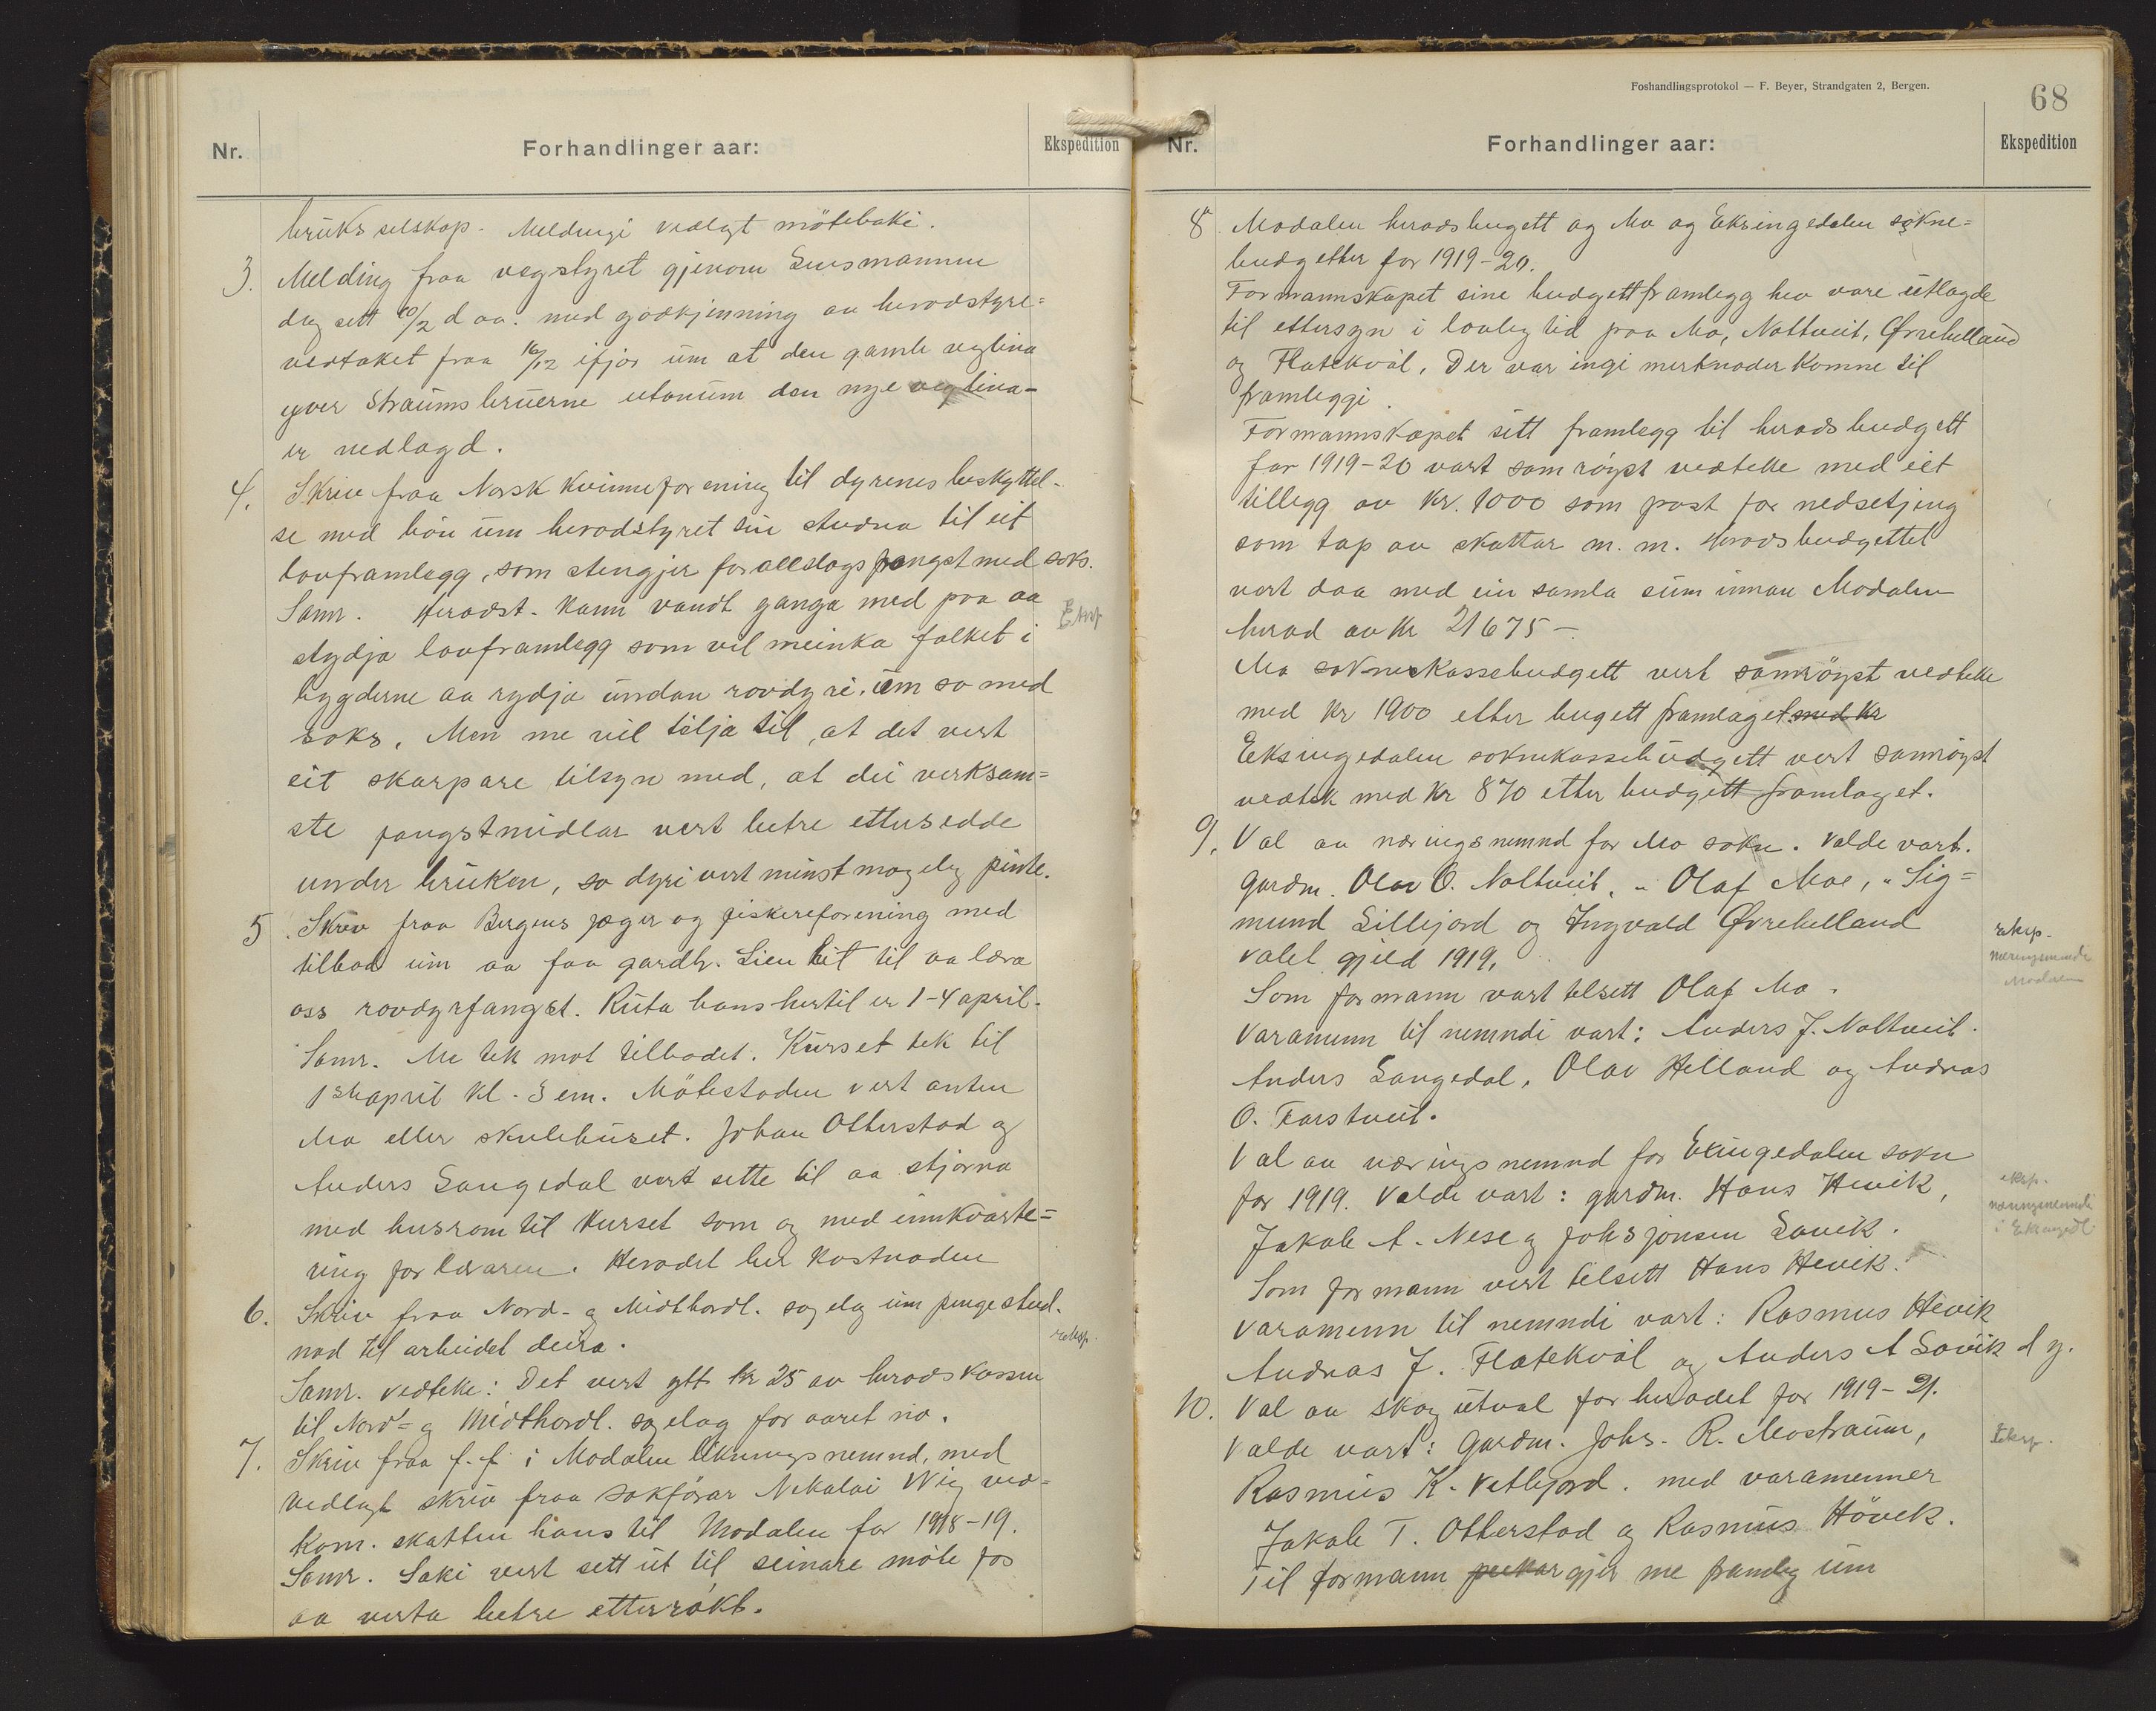 Nr.
Forhandlinger aar:
Ekspedition
bruks selskap. Meldingi vedlegt mötebaki.
3. Melding fraa vegstyret gjenom Lensmannen
dagsett 10/2 d aa. med godkjenning av heradstyre=
vedtaket fraa 16/12 ifjor um at den gamle veglina
yver Straums bruerne utanum den nye veglina-
er nedlagd.
4. Skriv fraa Norsk Kvinneforening til dyrenes beskyttel-
se med bön um heradstyret sin studna til eit
lovframlegg, som stengjer for allslags fangst med saks.
Samr. Heradst. kann vandt ganga med paa aa
Eksp
stydja lovframlegg som vil meinka folket i
bygderne aa rydja undan rovdyri, um so med
saks. Men me vil tilja til, at det vert
eit skarpare tilsyn med, at dei verksam=
ste fangstmidlar vert betre ettersedde
under bruken, so dyri vert minst mogeleg pinte.
5. Skriv fraa Bergens jæger og fiskereforening med
tilbod um aa faa gardb. Lien hit til aa læra
oss rovdyrfangst. Ruta hans hertil er 1-4 april.
Samr. Me tek mot tilbodet. Kurset tek til
1ste april kl. 3 em. Mötestaden vert anten
Mo eller skulehuset. Johan Otterstad og
Anders Langedal vert sette til aa stjorna
med husrom til kurset som og med innkvarte=
ring for læraren. Heradet ber kostnaden
6. Skriv fraa Nord- og Midthordl. sogelag um pengestud-
nad til arbeidet deira.
eksp.
Samr. vedteke: Det vert gjtt kr 25 av herads kassen
til Nord- og Midthordl. sogelag for aaret no.
7. Skriv fraa f. f. i Modalen likningsnemnd, med
vedlagt skriv fraa sakförar Nikolai Wig ved=
kom. skatten hans til Modalen for 1918-19.
Samr. Saki vert sett ut til seinare möte for
aa verta betre etterrökt.
Foshandlingsprotokol — F. Beyer, Strandgaten 2, Bergen.
68
Nr.
Forhandlinger aar:
Ekspedition
8. Modalen heradsbugett og Mo og Eksingedalen sokne=
budgetter for 1919-20.
Formannskapet sine budgettframlegg hev vore utlagde
til ettersyn i lovleg tid paa Mo, Nottveit, Øvrehelland
og Flatekvål. Der var ingi merknader komne til
framleggi.
Formannskapet sitt framlegg til heradsbudgett
for 1919-20 vart samröyst vedteke med eit
tillegg av kr. 1000 som post for nedsetjing
som tap av skattar m. m. Heradsbudgettet
vert daa med ein samla sum innan Modalen
herad av kr 21675-.
Mo soknekassebudgett vert samröyst vedteke
med kr 1900 etter bugett framlaget. med kr
Eksingedalen soknekassebudgett vert samröyst
vedtek med kr 870 etter budgett framlaget.
9. Val av næringsnemnd for Mo sokn. Valde vart.
gardm. Olav O. Nottveit, " Olaf Moe, " Sig=
mund Lillejord og Ingvald Øvrehelland
valet gjeld 1919.
eksp.
næringsnemnda
Modalen
Som formann vart tilsett Olaf Mo.
Varamenn til nemndi vart: Anders J. Nottveit.
Anders Langedal, Olav Helland og Andras
O. Farstveit.
Val av næringsnemnd for Eksingedalen sokn
for 1919. Valde vart: gardm. Hans Hevik,
eksp.
næringsnemnda
i Eksingedl.
Jakob A. Nese og Johs Jonsen Lavik.
Som formann vert tilsett Hans Hevik.
Varamenn til nemndi vart: Rasmus Hevik
Andras J. Flatekvål og Anders A Lavik d y.
10. Val av skogutval for heradet for 1919-21.
Valde vart: gardm. Johs. R. Mostraum,
Eksp.
Rasmus K. Vetlejord. med varamenner
Jakob T. Otterstad og Rasmus Hövik.
Til formann gjer me framlegg um